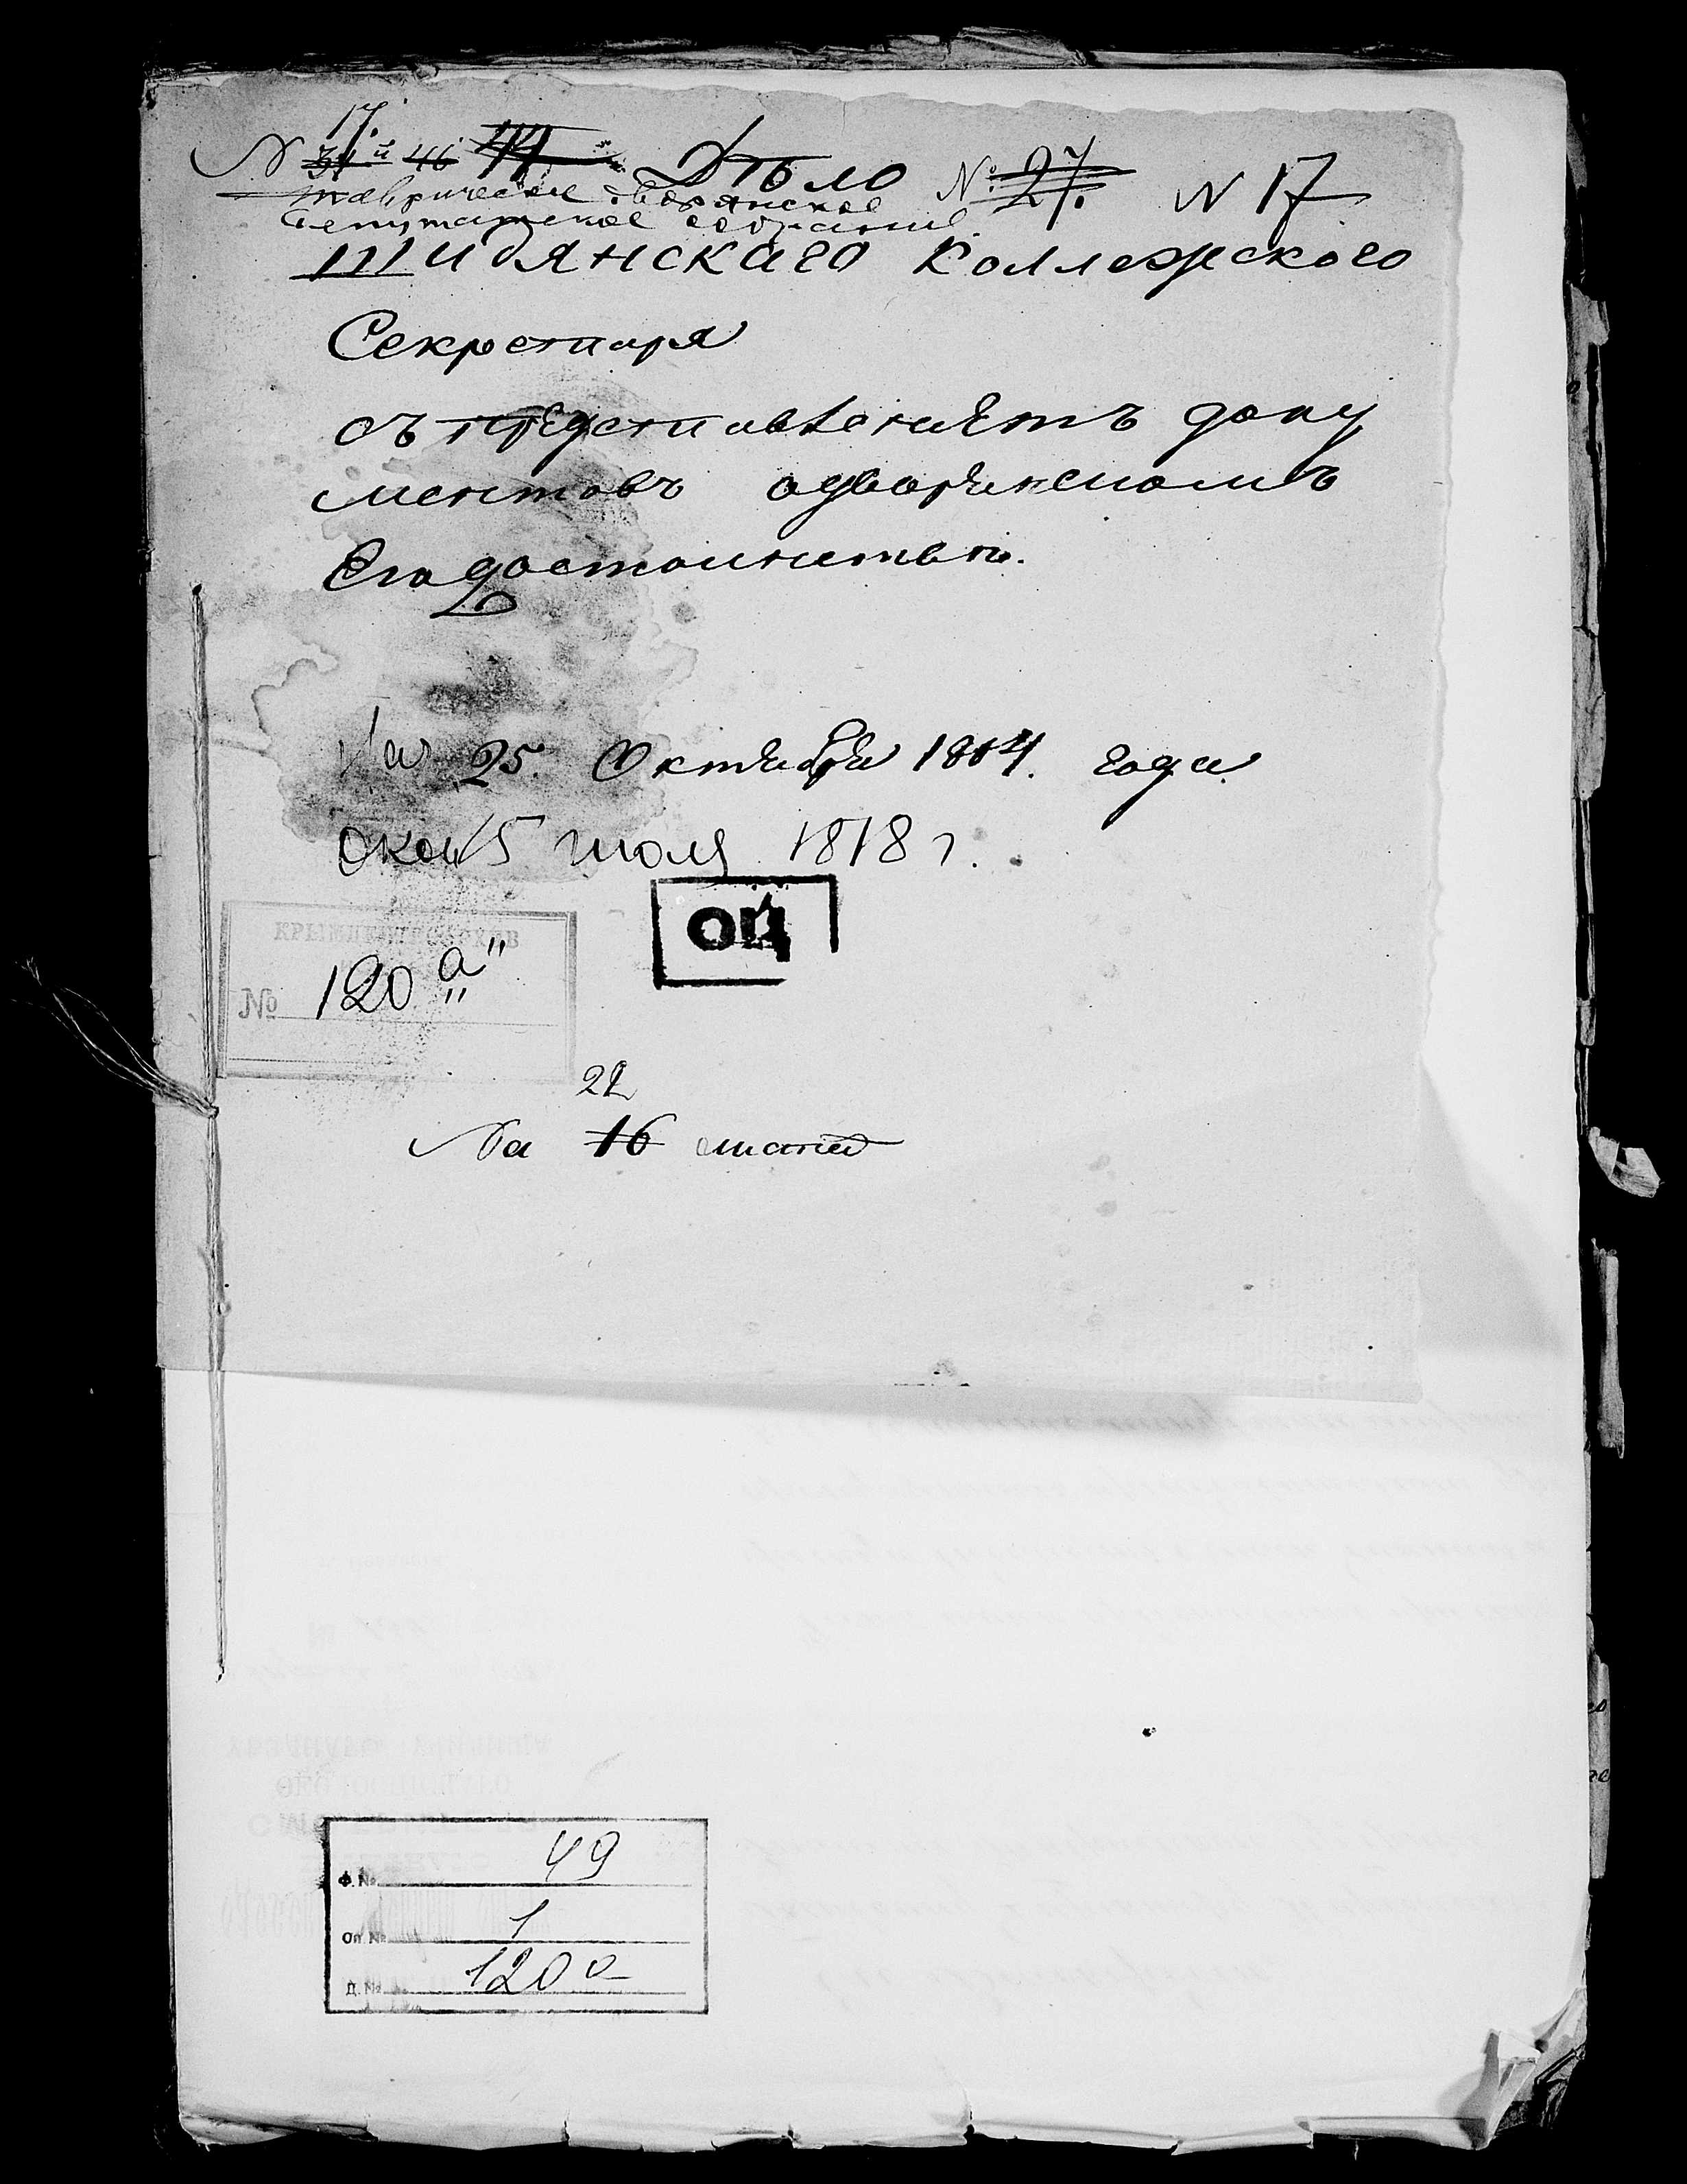 17.
N 31 й 46 Дѣло № 27. N 17
Таврическое дворянское
депутатское собрание
Шидянскаго Коллежского
Секретаря
съ представлениемъ доку
ментовъ одворянскомъ
Его достоинствѣ.
25. Октября 1804. года
окон 15 июля 1818 г.
ОЦ
КРЫМЦЕНТРАРХИВ
№ 120 "а"
22
На 16
Ф. № 49
Оп. № 1
Д. № 120 а